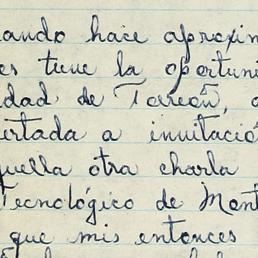 uando hace aproxim
es tuve la oportuni
dad de Torreón, 
ertada a invitació
quella otra charla
Tecnológico de Mont
que mis entonces